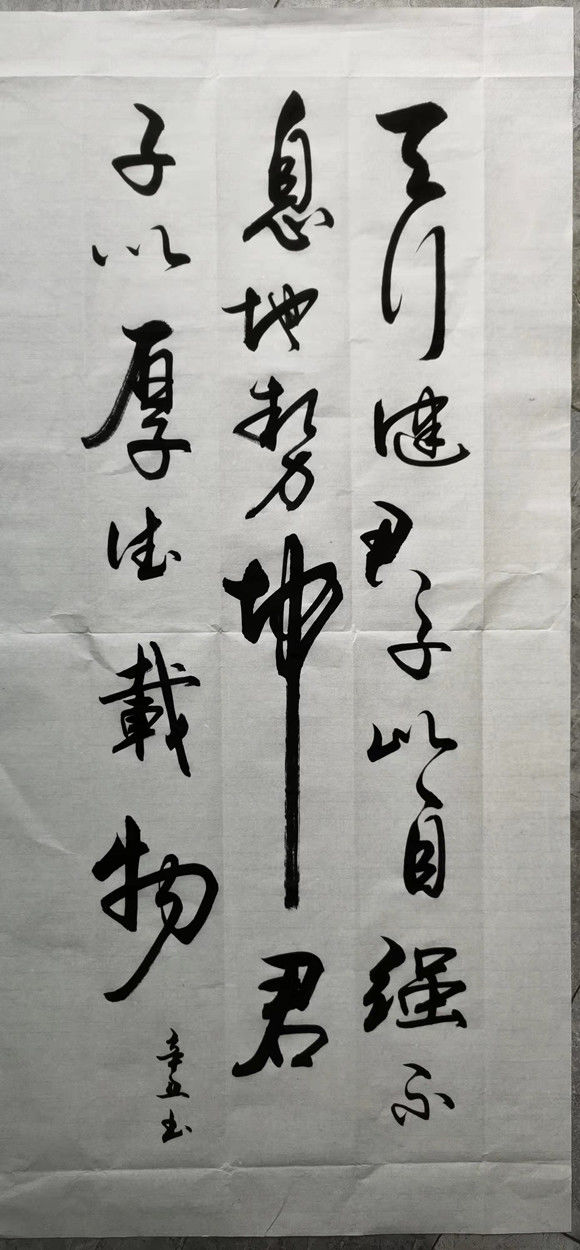 天行健君子以自强不
息地势坤君
子以厚德載物
辛丑书